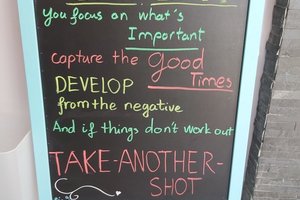 You focus on what's
Important
capture the good
Times
DEVELOP
from the negative
And if things don't work out
TAKE-ANOTHER-
SHOT